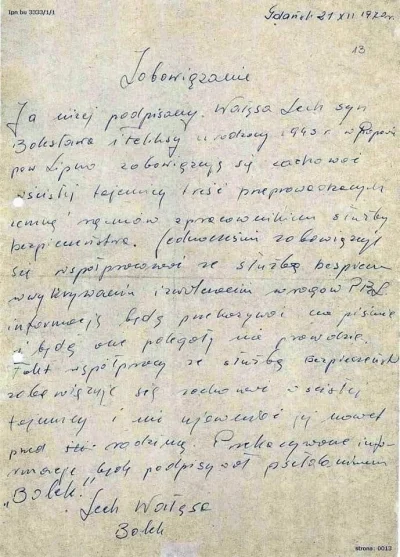 Ipn bu 3333/1/1
Gdańsk 21 XII 1970r.
13
Zobowiązanie
Ja niżej podpisany. Wałęsa Lech syn
Bolesława i Feliksy urodzony 1943 r w Popowie
pow Lipno zobowiązują się zachować
w ścisłej tajemnicy treść przeprowadzanych
zemną rozmów z pracownikiem służby
bezpieczeństwa. Jednocześnie zobowiązuje
się współpracować ze służbą bezpiecz
w wykrywaniu i zwalczaniu wrogów PRL
informację będą przekazywać na piśmie
i będą one polegały na prawdzie.
Fakt współpracy ze służbą Bezpieczeństw
zobowiązuje się zachować w ścisłej
tajemnicy i nie ujawniać jej nawet
przed rodziną. Przekazywane infor-
macje będę podpisywał pseudonimem
„Bolek."
Lech Wałęsa
Bolek
strona: 0013